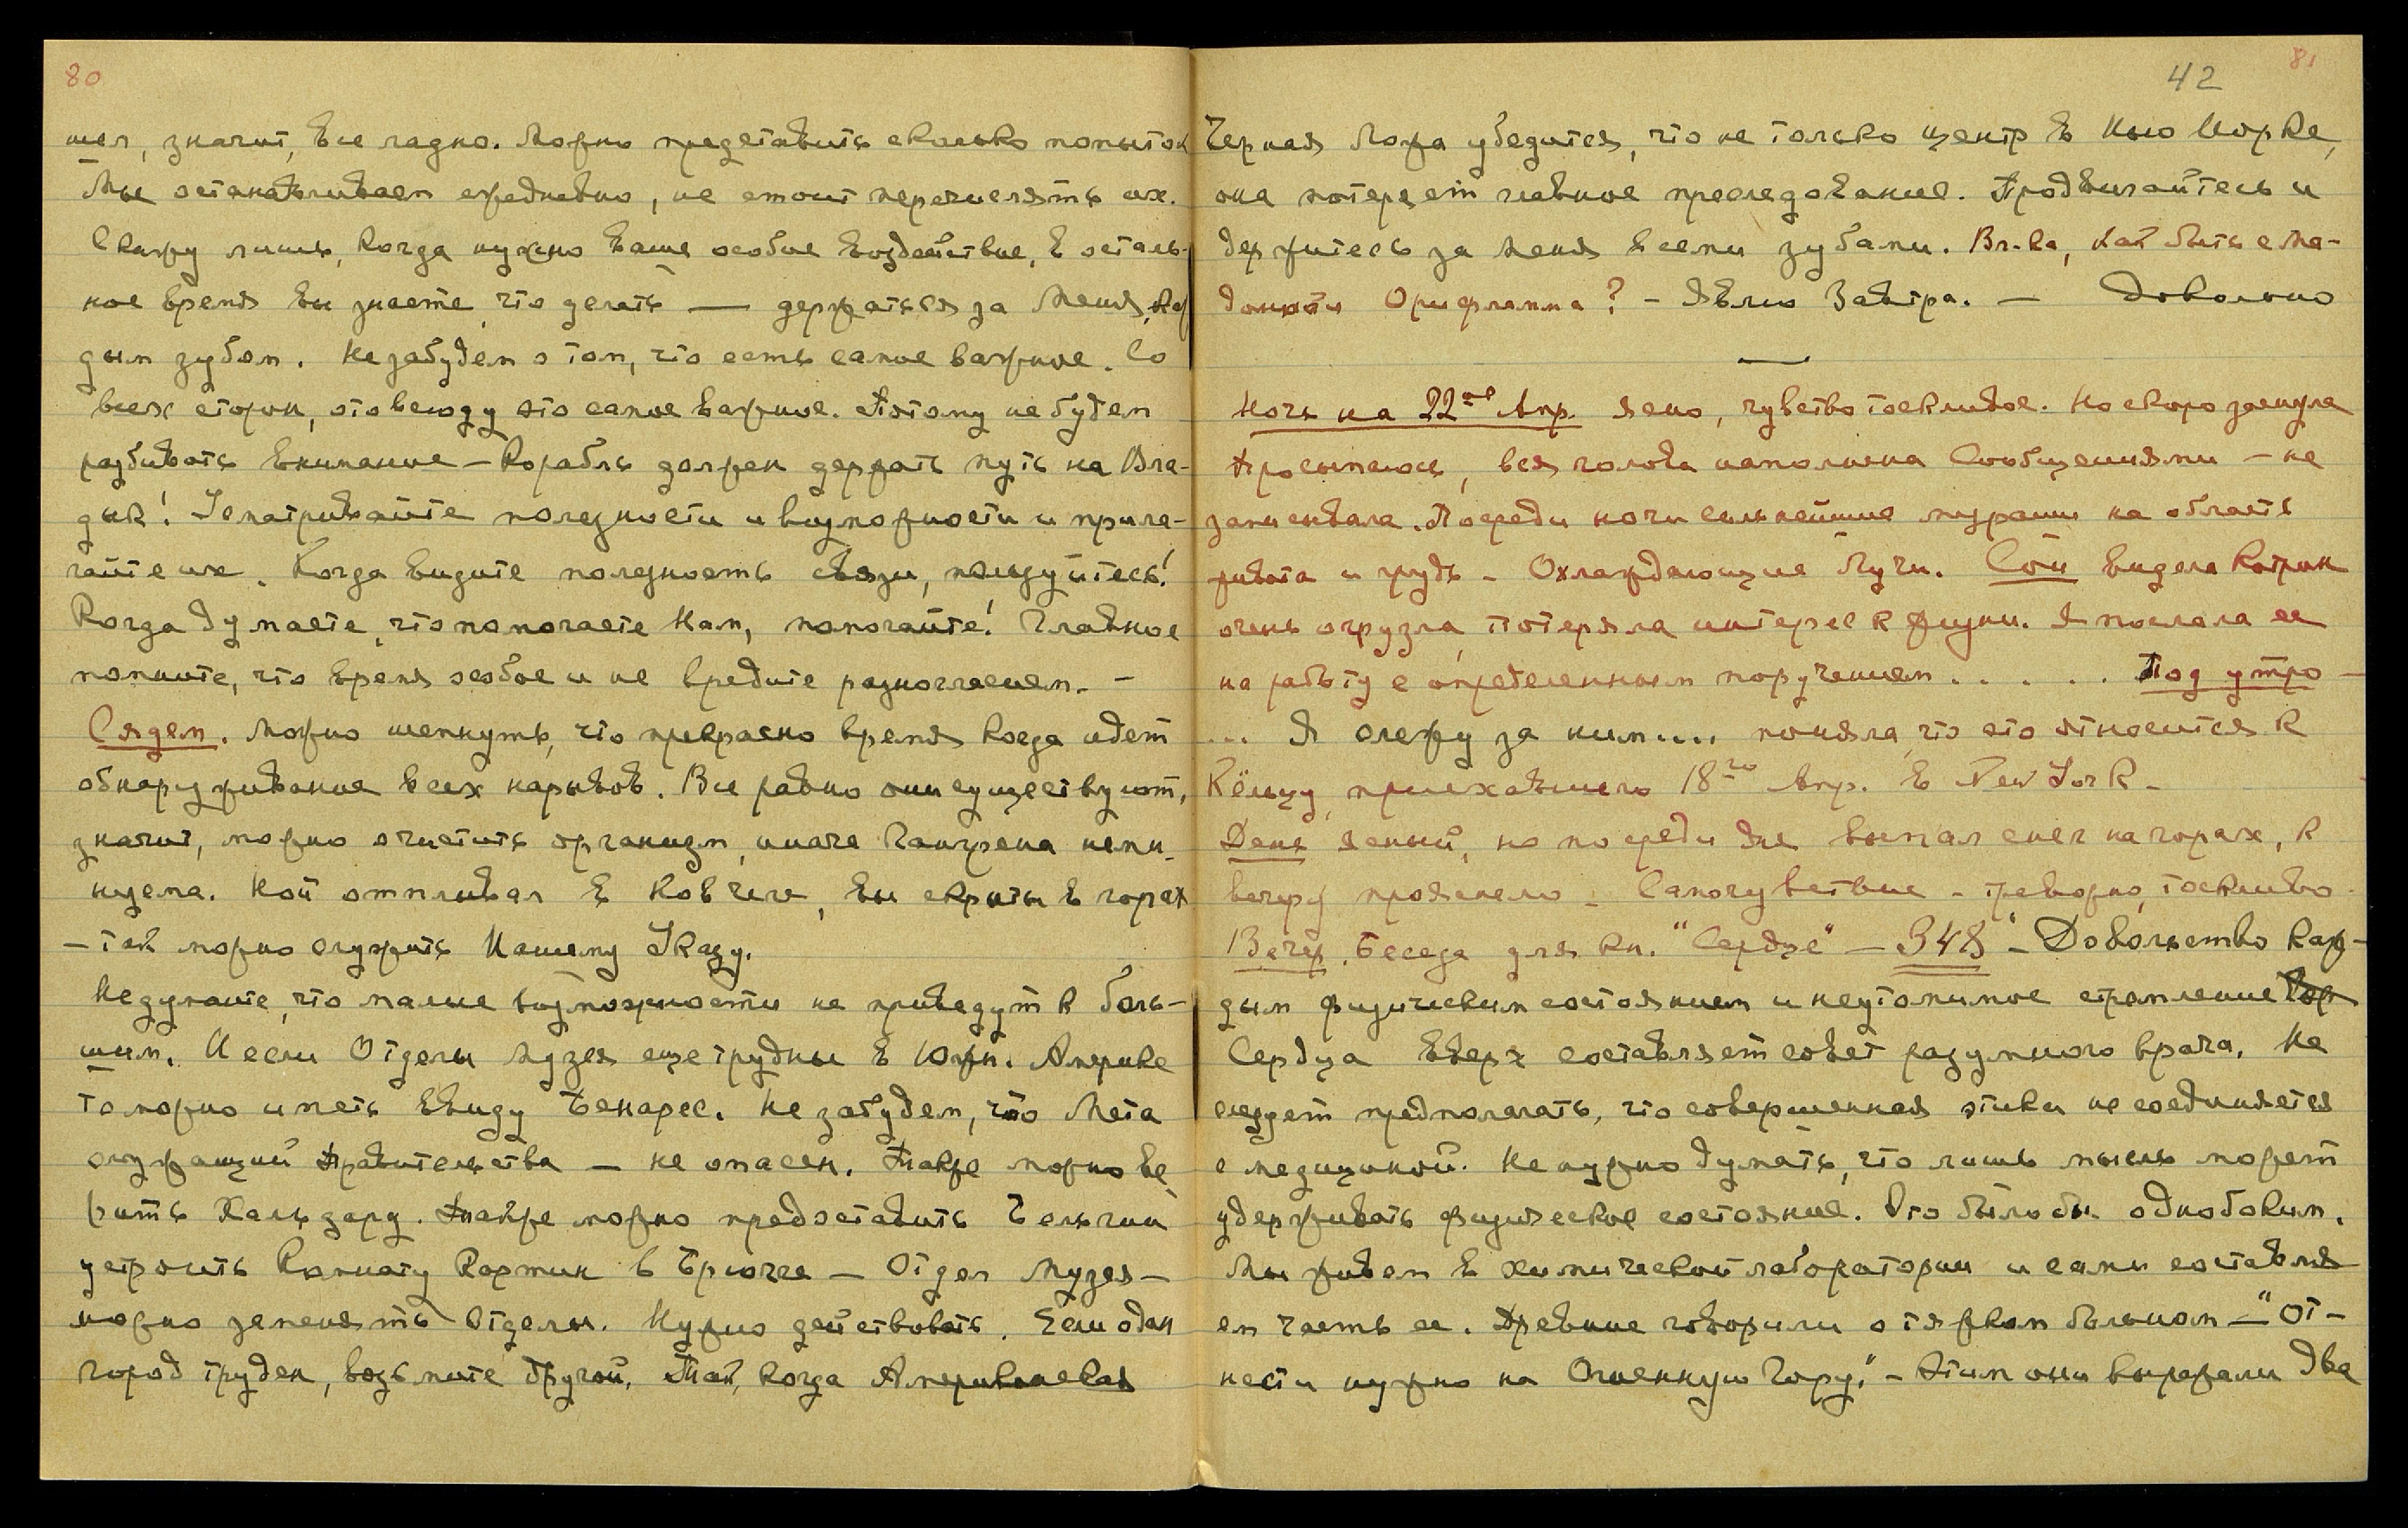 80
шел, значит, все ладно. Можно представить сколько попыток
Мы останавливаем ежедневно, не стоит перечислять их.
Скажу лишь, когда нужно Ваше особое воздействие, в осталь-
ное время вы знаете, что делать — держаться за Меня, каж
дым зубом. Не забудем о том, что есть самое важное. Со
всех сторон, отовсюду это самое важное. Поэтому не будем
разбивать внимание — Корабль должен держать путь на Вла-
дык! Усматривайте полезности и возможности и прила-
гайте их. Когда видите полезность связи, пользуйтесь!
Когда думаете, что помогаете Нам, помогайте! Главное
помните, что время особое и не вредите разногласием. —
Сядем. Можно шепнуть, что прекрасно время когда идет
обнаруживание всех нарывов. Все равно они существуют,
значит, можно очистить организм, иначе гангрена неми-
нуема. Ной отплывал в Ковчеге, вы скрыты в горах
— так можно служить Нашему Указу.
Не думайте, что малые возможности не приведут к боль-
шим. И если Отделы Музея еще трудны в Южн. Америке
то можно иметь ввиду Бенарес. Не забудем, что Мета
служащий Правительства — не опасен. Также можно ве
рить Хальдару. Также можно предоставить Бельгии
устроить Комнату Картин в Брюгге — Отдел Музея —
можно заменять Отделы. Нужно действовать. Если один
город труден, возьмите другой. Так, когда Американская
42
81
Черная Ложа убедится, что не только центр в Нью Йорке,
она потеряет главное преследование. Продвигайтесь и
держитесь за Меня всеми зубами. Вл-ка, как быть с Ма-
донной Орифламма? — Явлю Завтра. — Довольно
—
Ночь на 22ое Апр. ясно, чувство тоскливое. Но скоро заснула
Просыпаюсь, вся голова наполнена Сообщениями — не
записывала. Посреди ночи сильнейшие мураши на область
живота и грудь — Охлаждающие Лучи. Сон видела Катрин
очень огрузла, потеряла интерес к жизни. Я послала ее
на работу с определенным поручением . . . . . . Под утро —
... Я слежу за ним.... поняла, что это относится к
Кёльцу, приехавшего 18го Апр. в New York —
День ясный, но посреди дня выпал снег на горах, к
вечеру прояснело — Самочувствие — тревожно, тоскливо.
Вечер. Беседа для кн. "Сердце" — 348 — Довольство каж-
дым физическим состоянием и неутомимое стремление
Сердца вверх составляет совет разумного врача. Не
следует предполагать, что совершенная этика не соединяется
с медициной. Не нужно думать, что лишь мысль может
удерживать физическое состояние. Это было бы однобоким.
Мы живем в химической лаборатории и сами составля
ем часть ее. Древние говорили о тяжком больном — "От-
нести нужно на Огненную Гору." — Этим они выражали два